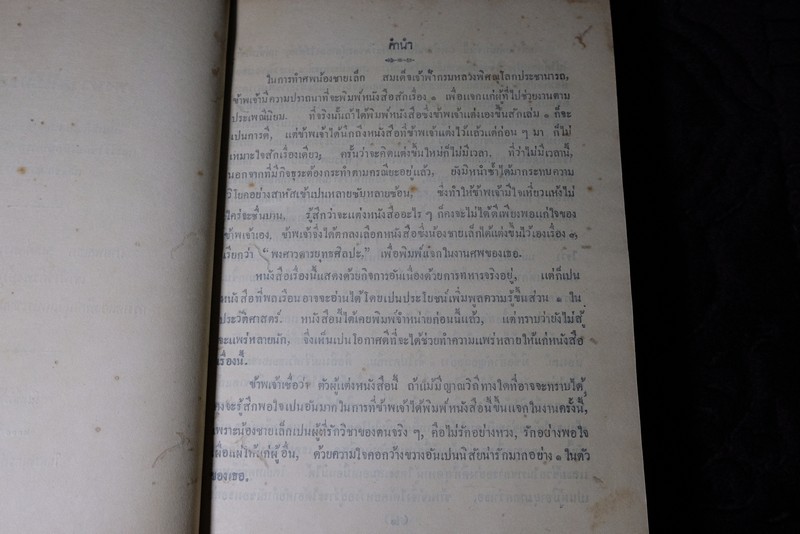 คำนำ
ในการทำศพน้องชายเล็ก สมเด็จเจ้าฟ้ากรมหลวงพิศณุโลกประชานารถ,
ข้าพเจ้ามีความปรารถนาที่จะพิมพ์หนังสือสักเรื่อง ๑ เพื่อแจกแก่ผู้ที่ไปช่วยงานตาม
ประเพณีนิยม. ที่จริงนั้นถ้าได้พิมพ์หนังสือซึ่งข้าพเจ้าแต่งเองขึ้นสักเล่ม ๑ ก็จะ
เปนการดี, แต่ข้าพเจ้าได้นึกถึงหนังสือที่ข้าพเจ้าแต่งไว้แล้วแต่ก่อน ๆ มา ก็ไม่
เหมาะใจสักเรื่องเดียว, ครั้นว่าจะคิดแต่งขึ้นใหม่ก็ไม่มีเวลา. ที่ว่าไม่มีเวลานี้,
นอกจากที่มีกิจธุระต้องกระทำตามคระเนียะอยู่แล้ว, ยังมีหน้าซ้ำได้มากระทบความ
วิโยคอย่างสาหัสเข้าเปนหลายซับหลายซ้อน, ซึ่งทำให้ข้าพเจ้ามีใจเหี่ยวแห้งไม่
ใคร่จะชื่นบาน. รู้สึกว่าจะแต่งหนังสืออะไร ๆ ก็คงจะไม่ได้ดีเพียงพอแก่ใจของ
ข้าพเจ้าเอง. ข้าพเจ้าจึงได้ตกลงเลือกหนังสือซึ่งน้องชายเล็กได้แต่งขึ้นไว้เองเรื่อง ๑,
เรียกว่า “พงศาวดารยุทธศิลปะ,” เพื่อพิมพ์แจกในงานศพของเธอ.
หนังสือเรื่องนี้แสดงด้วยกิจการอันเนื่องด้วยการทหารจริงอยู่, แต่ก็เปน
หนังสือที่พลเรือนอาจจะอ่านได้โดยเปนประโยชน์เพิ่มพูลความรู้ขึ้นส่วน ๑ ใน
ประวัติศาสตร์. หนังสือนี้ได้เคยพิมพ์จำหน่ายก่อนนี้แล้ว, แต่ทราบว่ายังไม่สู้
จะแพร่หลายนัก, จึ่งเห็นเปนโอกาศดีที่จะได้ช่วยทำความแพร่หลายให้แก่หนังสือ
เรื่องนี้.
ข้าพเจ้าเชื่อว่า ตัวผู้แต่งหนังสือนี้ ถ้าแม้มีญาณวิถีทางใดที่อาจจะทราบได้,
คงจะรู้สึกพอใจเปนอันมากในการที่ข้าพเจ้าได้พิมพ์หนังสือนี้ขึ้นแจกในงานครั้งนี้,
เพราะน้องชายเล็กเปนผู้ที่รักวิชาของตนจริง ๆ, คือไม่รักอย่างหวง, รักอย่างพอใจ
เผื่อแผ่ให้แก่ผู้อื่น, ด้วยความใจคอกว้างขวางอันเปนนิสัยน่ารักมากอย่าง ๑ ในตัว
ของเธอ.